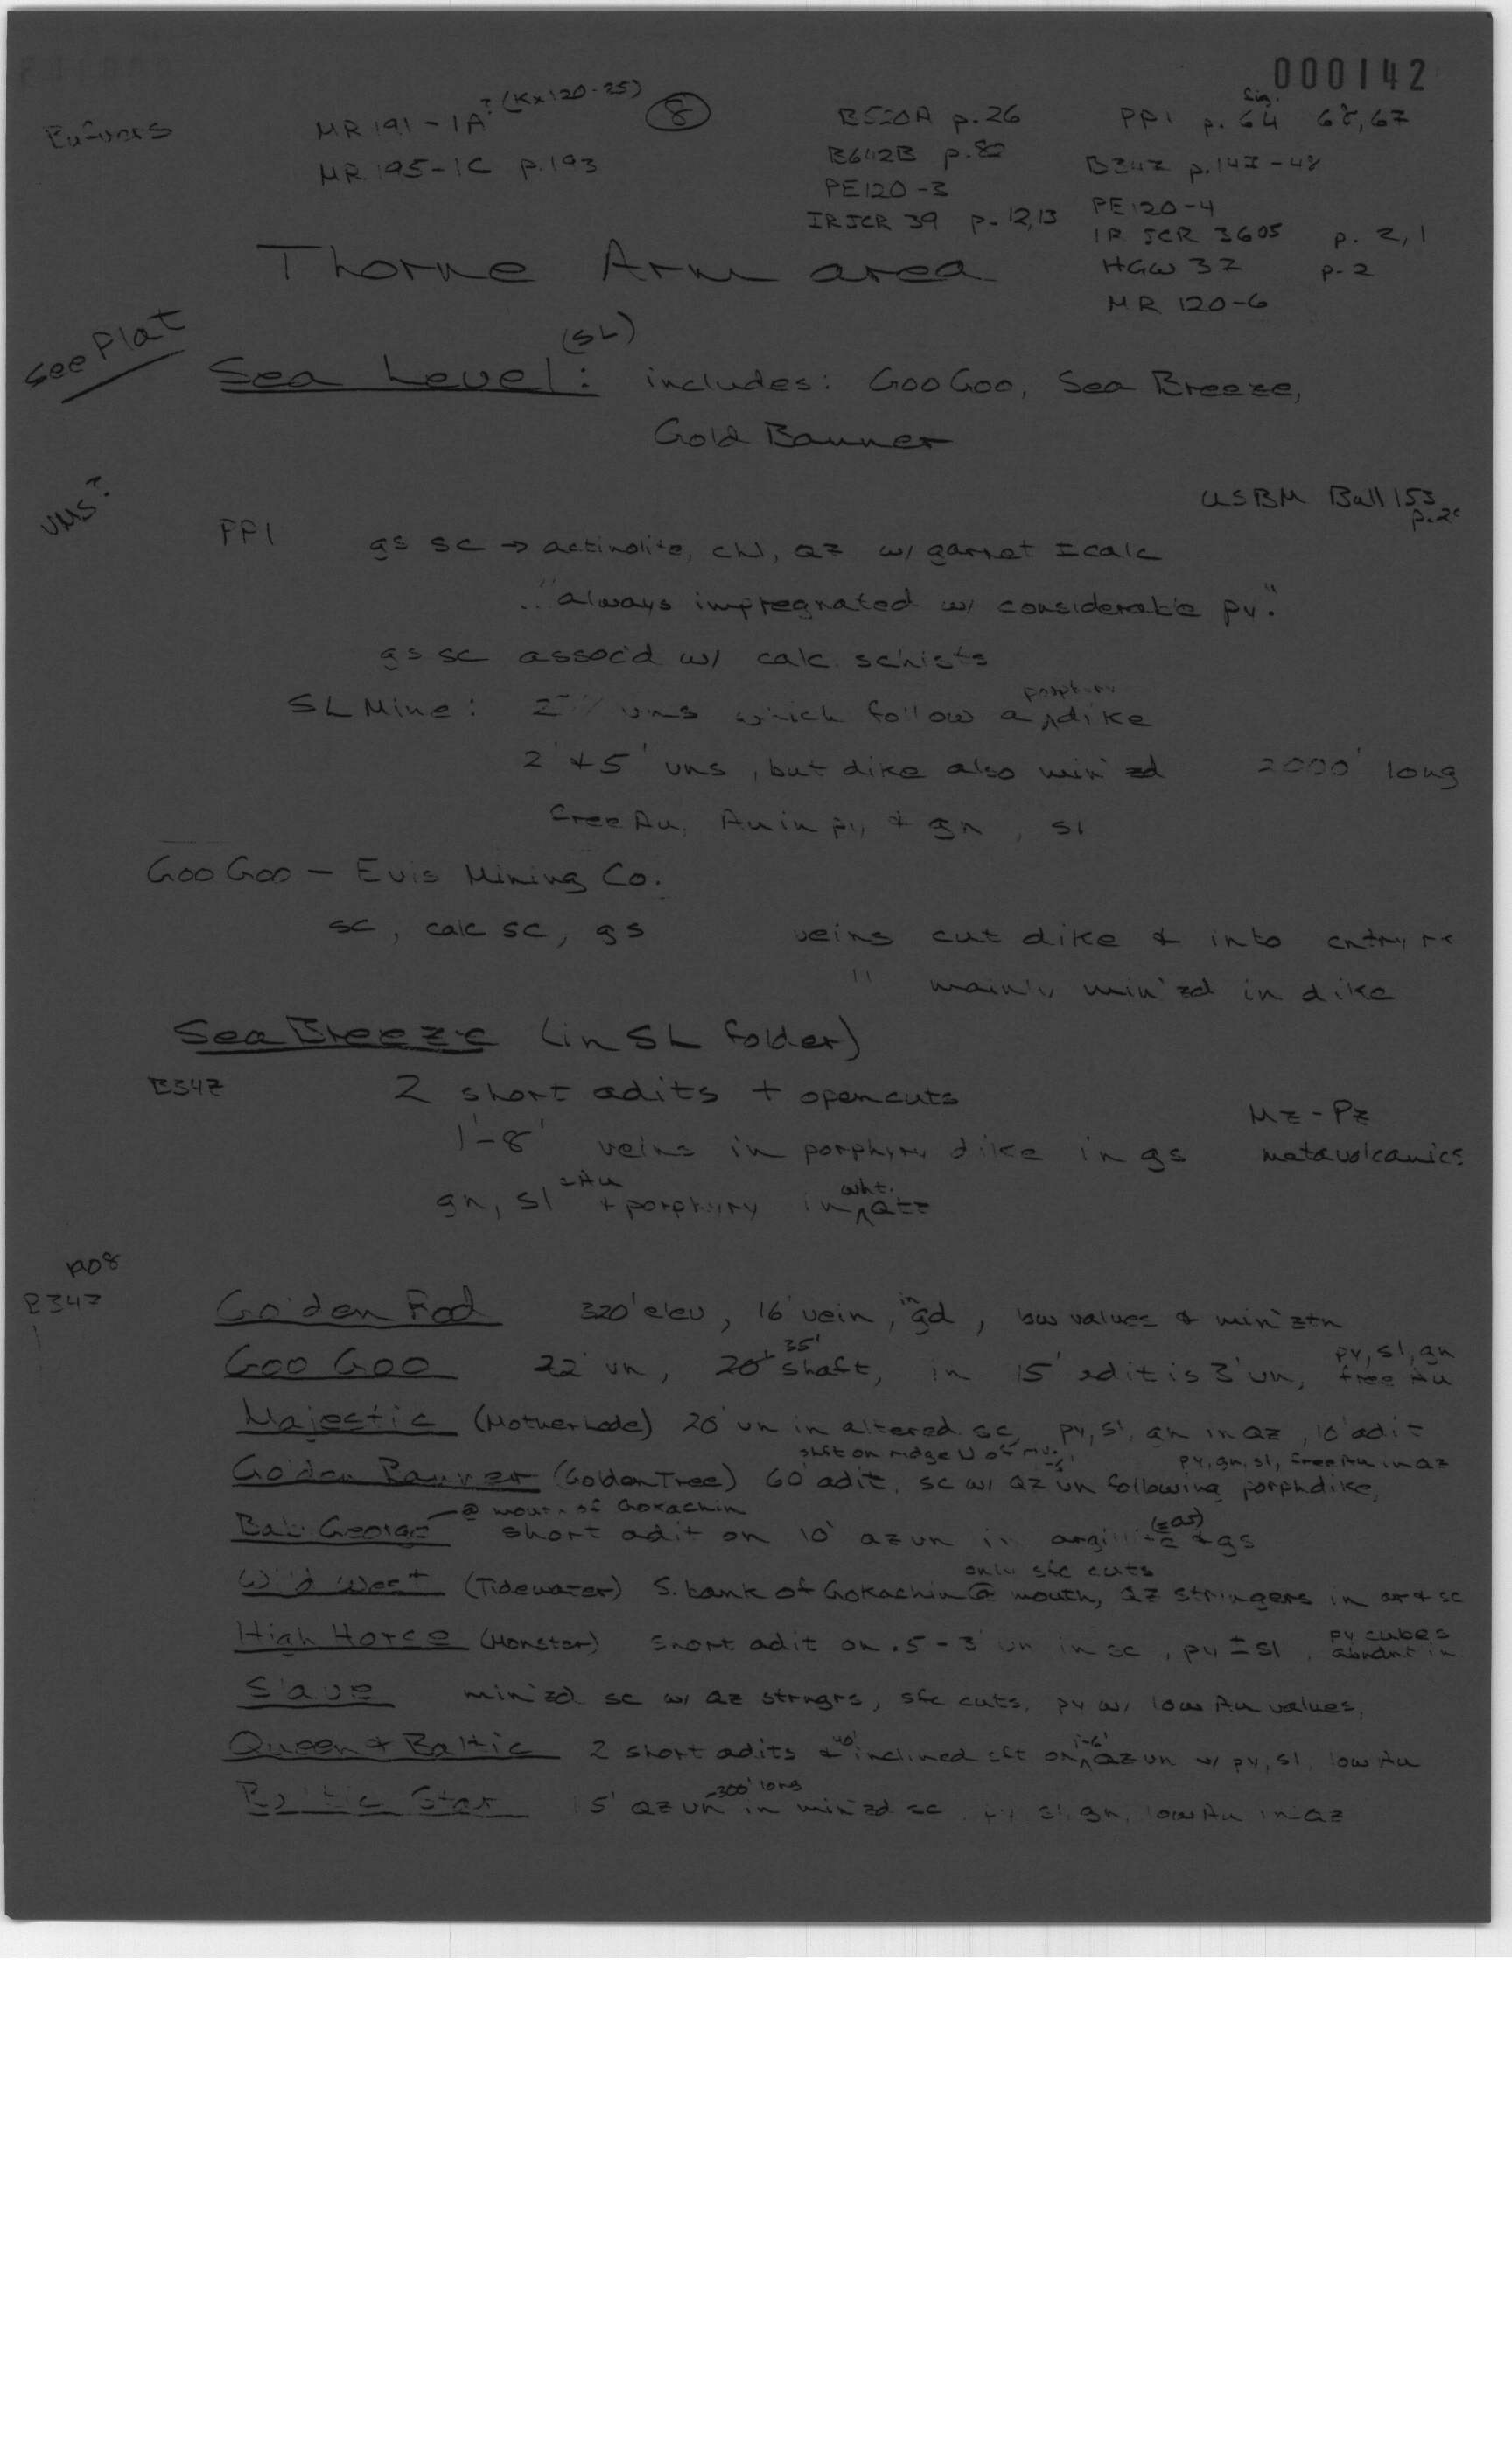 000142
MR 191-1A? (Kx120-25) 8 B520A p.26 PP1 p. 64 fig. 68, 67
MR 195-1C p.193 B642B p.82 B347 p.147-48
PE120-3 PE120-4
IRJCR 39 p-12,13 IR JCR 3605 p. 2, 1
HGW 37 p-2
MR 120-6
Thorne Arm area
see Plat
Sea Level: (SL) includes: Goo Goo, Sea Breeze,
Gold Banner
VMS?
USBM Bull 153
PP1 gs sc → actinolite, chl, qz w/ garnet ± calc
.."always impregnated w/ considerable py."
gs sc assoc'd w/ calc. schists
SL Mine: 2 vns which follow a porphyry dike
2' + 5' vns, but dike also min'zd 2000' long
free Au, Au in py + gn, sl
Goo Goo - Evis Mining Co.
sc, calc sc, gs veins cut dike & into cntry rx
" mainly min'zd in dike
Sea Breeze (in SL folder)
B347 2 short adits + opencuts
1'-8' veins in porphyry dike in gs Mz-Pz metavolcanics
gn, sl ± Au + porphyry in wht. Qtz
B347
Golden Rod 320' elev, 16' vein, in gd, low values & min'ztn
Goo Goo 22' vn, 20' 35' shaft, in 15' adit is 3' vn, py, sl, gn free Au
Majestic (Motherlode) 20' vn in altered sc, py, sl, gn in qz, 10' adit
Golden Banner (Golden Tree) 60' adit, sc w/ qz vn following porph dike, py, gn, sl, free Au in qz
shft on ridge N of
Bab George @ mouth of Gokachin short adit on 10' qz vn in argillite (±as) + gs
Wild West (Tidewater) S. bank of Gokachin @ mouth, only sfc cuts qz stringers in ar + sc
High Horse (Monster) short adit on .5-3' vn in sc, py ± sl, py cubes abndnt in
Slave min'zd sc w/ qz strngrs, sfc cuts, py w/ low Au values,
Queen + Baltic 2 short adits + 40' inclined sft on 1-6' qz vn w/ py, sl, low Au
Baltic Star 5' qz vn ~300' long in min'zd sc py sl, gn, low Au in qz